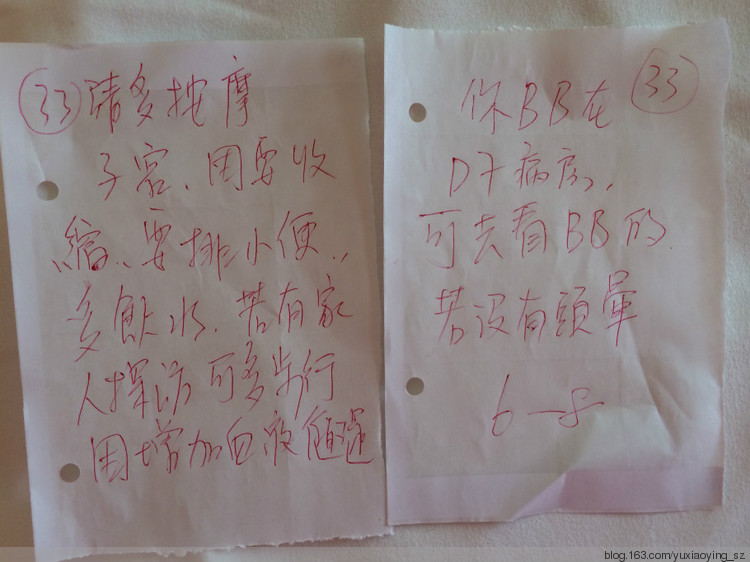 33 请多按摩
子宮、因要收
縮、要排小便、
多飲水、若有家
人探訪可多步行
因增加血液循還
33
你BB在
D7病房,
可去看BB的.
若没有頭暈
6-8
blog.163.com/yuxiaoying_sz